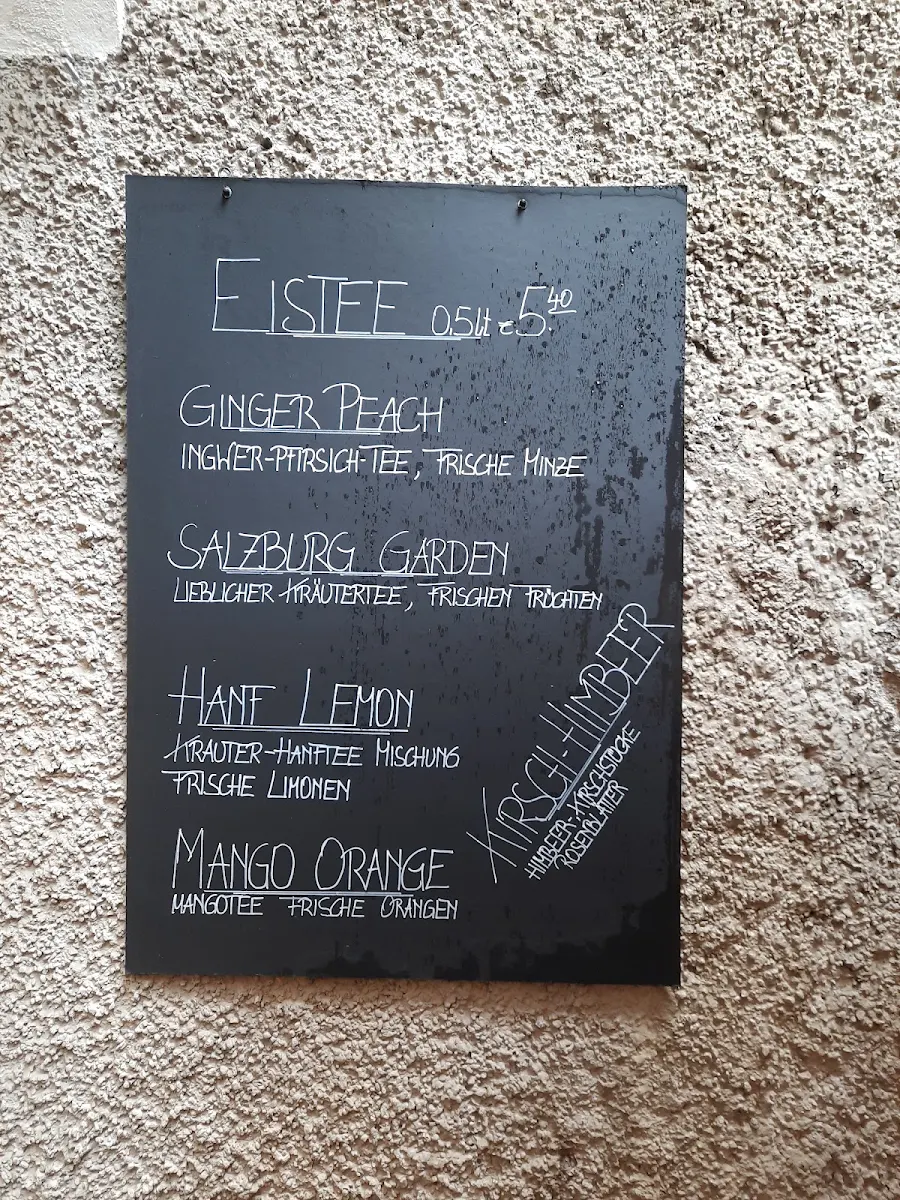 EISTEE 0,5lt = 5.40
GINGER PEACH
INGWER-PFIRSICH-TEE, FRISCHE MINZE
SALZBURG GARDEN
LIEBLICHER KRÄUTERTEE, FRISCHEN FRÜCHTEN
HANF LEMON
KRÄUTER-HANFTEE MISCHUNG
FRISCHE LIMONEN
MANGO ORANGE
MANGOTEE FRISCHE ORANGEN
KIRSCH-HIMBEER
HIMBEER-KIRSCHSTÜCKE
ROSENBLÄTTER